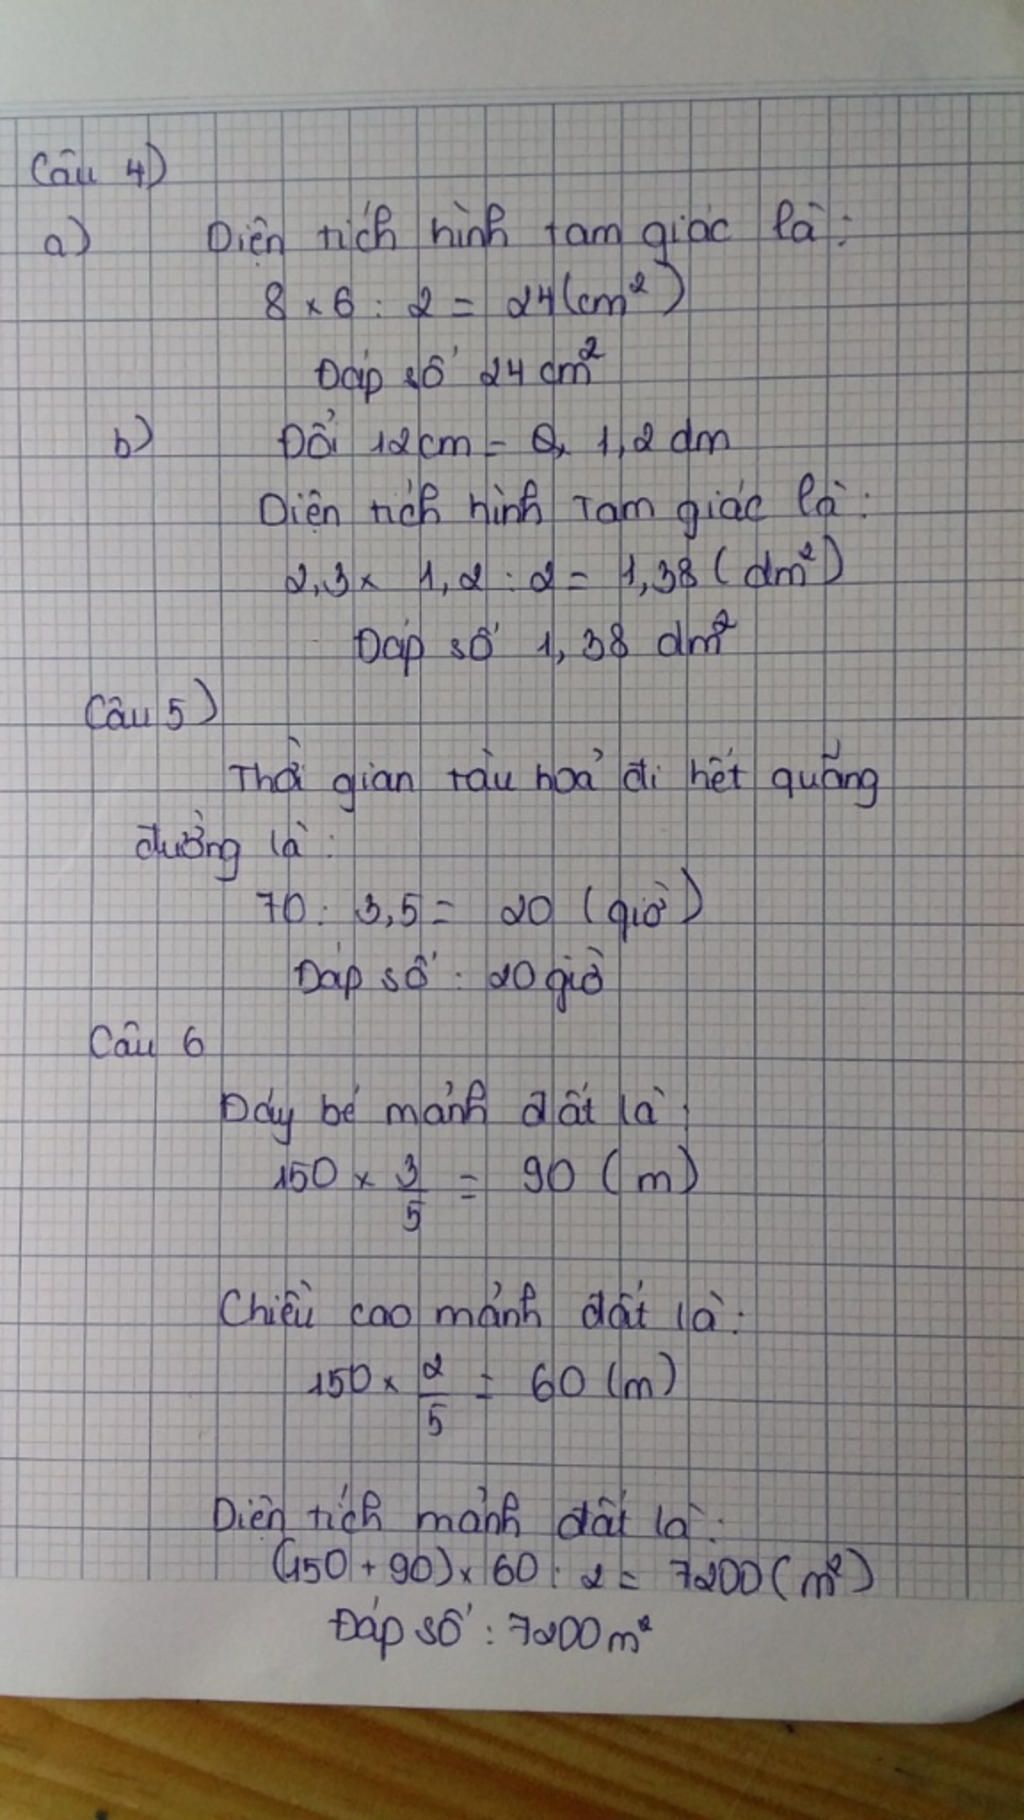 Câu 4)
a) Diện tích hình tam giác là:
8 × 6 : 2 = 24 (cm²)
Đáp số 24 cm²
b) Đổi 12cm = 1,2 dm
Diện tích hình tam giác là:
2,3 × 1,2 : 2 = 1,38 (dm²)
Đáp số 1,38 dm²
Câu 5)
Thời gian tàu hoả đi hết quãng
đường là:
70 : 3,5 = 20 (giờ)
Đáp số : 20 giờ
Câu 6
Đáy bé mảnh đất là:
150 × 3/5 = 90 (m)
Chiều cao mảnh đất là:
150 × 2/5 = 60 (m)
Diện tích mảnh đất là:
(150 + 90) × 60 : 2 = 7200 (m²)
Đáp số : 7200 m²